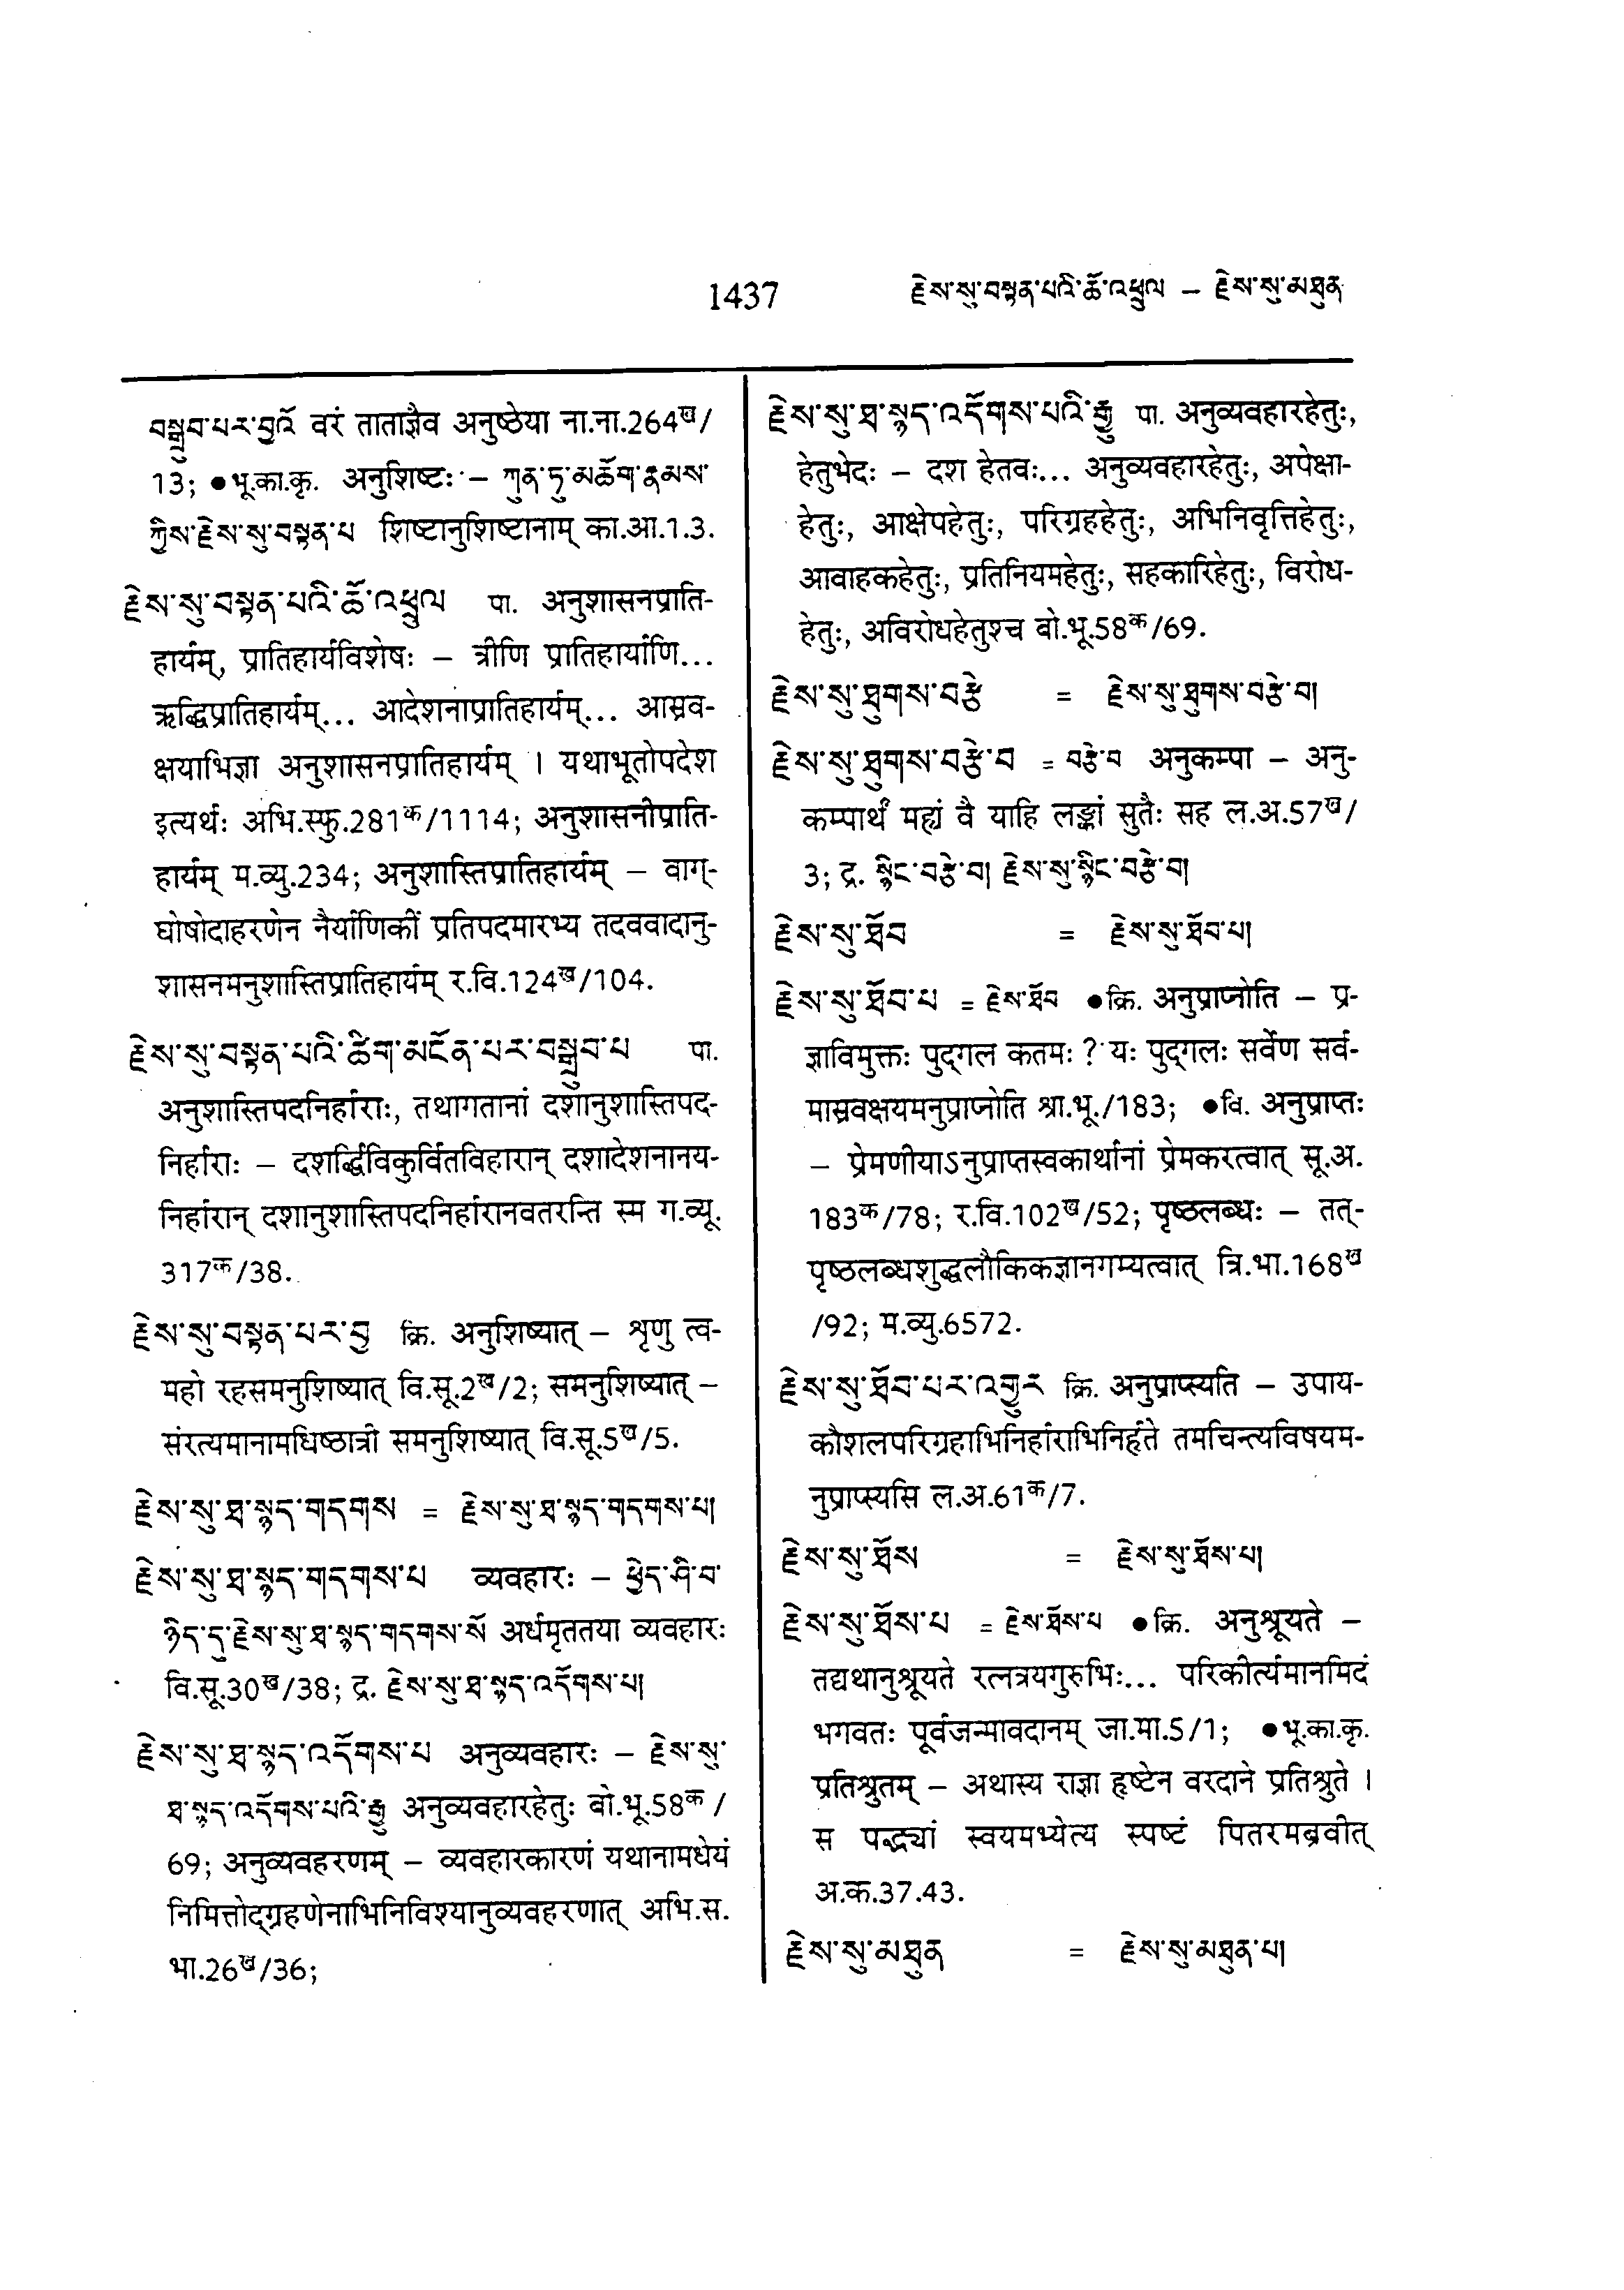 1437 རྗེས་སུ་བསྟན་པའི་ཆོ་འཕྲུལ – རྗེས་སུ་མཐུན
བསྒྲུབ་པར་བྱའོ वरं ताताज्ञैव अनुष्ठेया ना.ना.264ख/
13; ●भू.का.कृ. अनुशिष्टः – ཀུན་ཏུ་མཆོག་རྣམས་
ཀྱིས་རྗེས་སུ་བསྟན་པ शिष्टानुशिष्टानाम् का.आ.1.3.
རྗེས་སུ་བསྟན་པའི་ཆོ་འཕྲུལ पा. अनुशासनप्राति-
हार्यम्, प्रातिहार्यविशेषः – त्रीणि प्रातिहार्याणि...
ऋद्धिप्रातिहार्यम्... आदेशनाप्रातिहार्यम्... आस्रव-
क्षयाभिज्ञा अनुशासनप्रातिहार्यम् । यथाभूतोपदेश
इत्यर्थः अभि.स्फु.281क/1114; अनुशासनीप्राति-
हार्यम् म.व्यु.234; अनुशास्तिप्रातिहार्यम् – वाग्-
घोषोदाहरणेन नैर्याणिकीं प्रतिपदमारभ्य तदववादानु-
शासनमनुशास्तिप्रातिहार्यम् र.वि.124ख/104.
རྗེས་སུ་བསྟན་པའི་ཚིག་མངོན་པར་བསྒྲུབ་པ पा.
अनुशास्तिपदनिर्हाराः, तथागतानां दशानुशास्तिपद-
निर्हाराः – दशर्द्धिविकुर्वितविहारान् दशादेशनानय-
निर्हारान् दशानुशास्तिपदनिर्हारानवतरन्ति स्म ग.व्यू.
317क/38.
རྗེས་སུ་བསྟན་པར་བྱ क्रि. अनुशिष्यात् – शृणु त्व-
महो रहसमनुशिष्यात् वि.सू.2ख/2; समनुशिष्यात् –
संरत्यमानामधिष्ठात्री समनुशिष्यात् वि.सू.5ख/5.
རྗེས་སུ་ཐ་སྙད་གདགས = རྗེས་སུ་ཐ་སྙད་གདགས་པ།
རྗེས་སུ་ཐ་སྙད་གདགས་པ व्यवहारः – ཕྱེད་ཤི་བ་
ཉིད་དུ་རྗེས་སུ་ཐ་སྙད་གདགས་སོ अर्धमृततया व्यवहारः
वि.सू.30ख/38; द्र. རྗེས་སུ་ཐ་སྙད་འདོགས་པ།
རྗེས་སུ་ཐ་སྙད་འདོགས་པ अनुव्यवहारः – རྗེས་སུ་
ཐ་སྙད་འདོགས་པའི་རྒྱུ अनुव्यवहारहेतुः बो.भू.58क/
69; अनुव्यवहरणम् – व्यवहारकारणं यथानामधेयं
निमित्तोद्ग्रहणेनाभिनिविश्यानुव्यवहरणात् अभि.स.
भा.26ख/36;
རྗེས་སུ་ཐ་སྙད་འདོགས་པའི་རྒྱུ पा. अनुव्यवहारहेतुः,
हेतुभेदः – दश हेतवः... अनुव्यवहारहेतुः, अपेक्षा-
हेतुः, आक्षेपहेतुः, परिग्रहहेतुः, अभिनिवृत्तिहेतुः,
आवाहकहेतुः, प्रतिनियमहेतुः, सहकारिहेतुः, विरोध-
हेतुः, अविरोधहेतुश्च बो.भू.58क/69.
རྗེས་སུ་ཐུགས་བརྩེ = རྗེས་སུ་ཐུགས་བརྩེ་བ།
རྗེས་སུ་ཐུགས་བརྩེ་བ = བརྩེ་བ अनुकम्पा – अनु-
कम्पार्थं मह्यं वै याहि लङ्कां सुतैः सह ल.अ.57ख/
3; द्र. སྙིང་བརྩེ་བ། རྗེས་སུ་སྙིང་བརྩེ་བ།
རྗེས་སུ་ཐོབ = རྗེས་སུ་ཐོབ་པ།
རྗེས་སུ་ཐོབ་པ = རྗེས་ཐོབ ●क्रि. अनुप्राप्नोति – प्र-
ज्ञाविमुक्तः पुद्गल कतमः ? यः पुद्गलः सर्वेण सर्व-
मास्रवक्षयमनुप्राप्नोति श्रा.भू./183; ●वि. अनुप्राप्तः
– प्रेमणीयाऽनुप्राप्तस्वकार्थानां प्रेमकरत्वात् सू.अ.
183क/78; र.वि.102ख/52; पृष्ठलब्धः – तत्-
पृष्ठलब्धशुद्धलौकिकज्ञानगम्यत्वात् त्रि.भा.168ख
/92; म.व्यु.6572.
རྗེས་སུ་ཐོབ་པར་འགྱུར क्रि. अनुप्राप्स्यति – उपाय-
कौशलपरिग्रहाभिनिर्हाराभिनिर्हृते तमचिन्त्यविषयम-
नुप्राप्स्यसि ल.अ.61क/7.
རྗེས་སུ་ཐོས = རྗེས་སུ་ཐོས་པ།
རྗེས་སུ་ཐོས་པ = རྗེས་ཐོས་པ ●क्रि. अनुश्रूयते –
तद्यथानुश्रूयते रत्नत्रयगुरुभिः... परिकीर्त्यमानमिदं
भगवतः पूर्वजन्मावदानम् जा.मा.5/1; ●भू.का.कृ.
प्रतिश्रुतम् – अथास्य राज्ञा हृष्टेन वरदाने प्रतिश्रुते ।
स पद्भ्यां स्वयमभ्येत्य स्पष्टं पितरमब्रवीत्
अ.क.37.43.
རྗེས་སུ་མཐུན = རྗེས་སུ་མཐུན་པ།